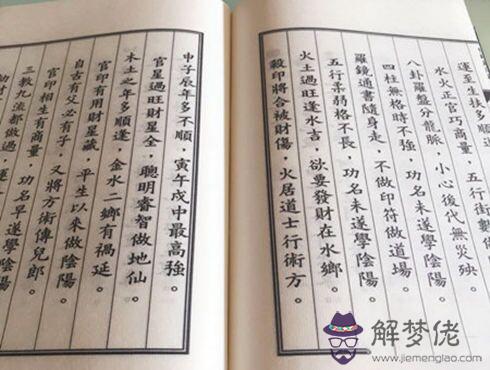 運至生扶多順
五行術數
水火正官巧商量，功名未遂學陰陽。
八卦羅盤分龍脈，小心後代無災殃。
四柱無格時不強，功名未遂學陰陽。
羅鏡通書隨身走，不做印符做道場。
五行柔弱格不長，功名未遂學陰陽。
火土過旺逢水吉，欲要發財在水鄉。
殺印將合被財傷，火居道士行術方。
申子辰年多不順，寅午戌中最高強。
官星過旺財星全，聰明睿智做地仙。
木土之年多順逢，金水二鄉有禍延。
官印有用財星藏，平生以來做陰陽。
自古有父必有子，又將方術傳兒郎。
官印相生有商量，功名早遂學陰陽。
三教九流都做過，運
解梦佬
www.jiemenglao.com